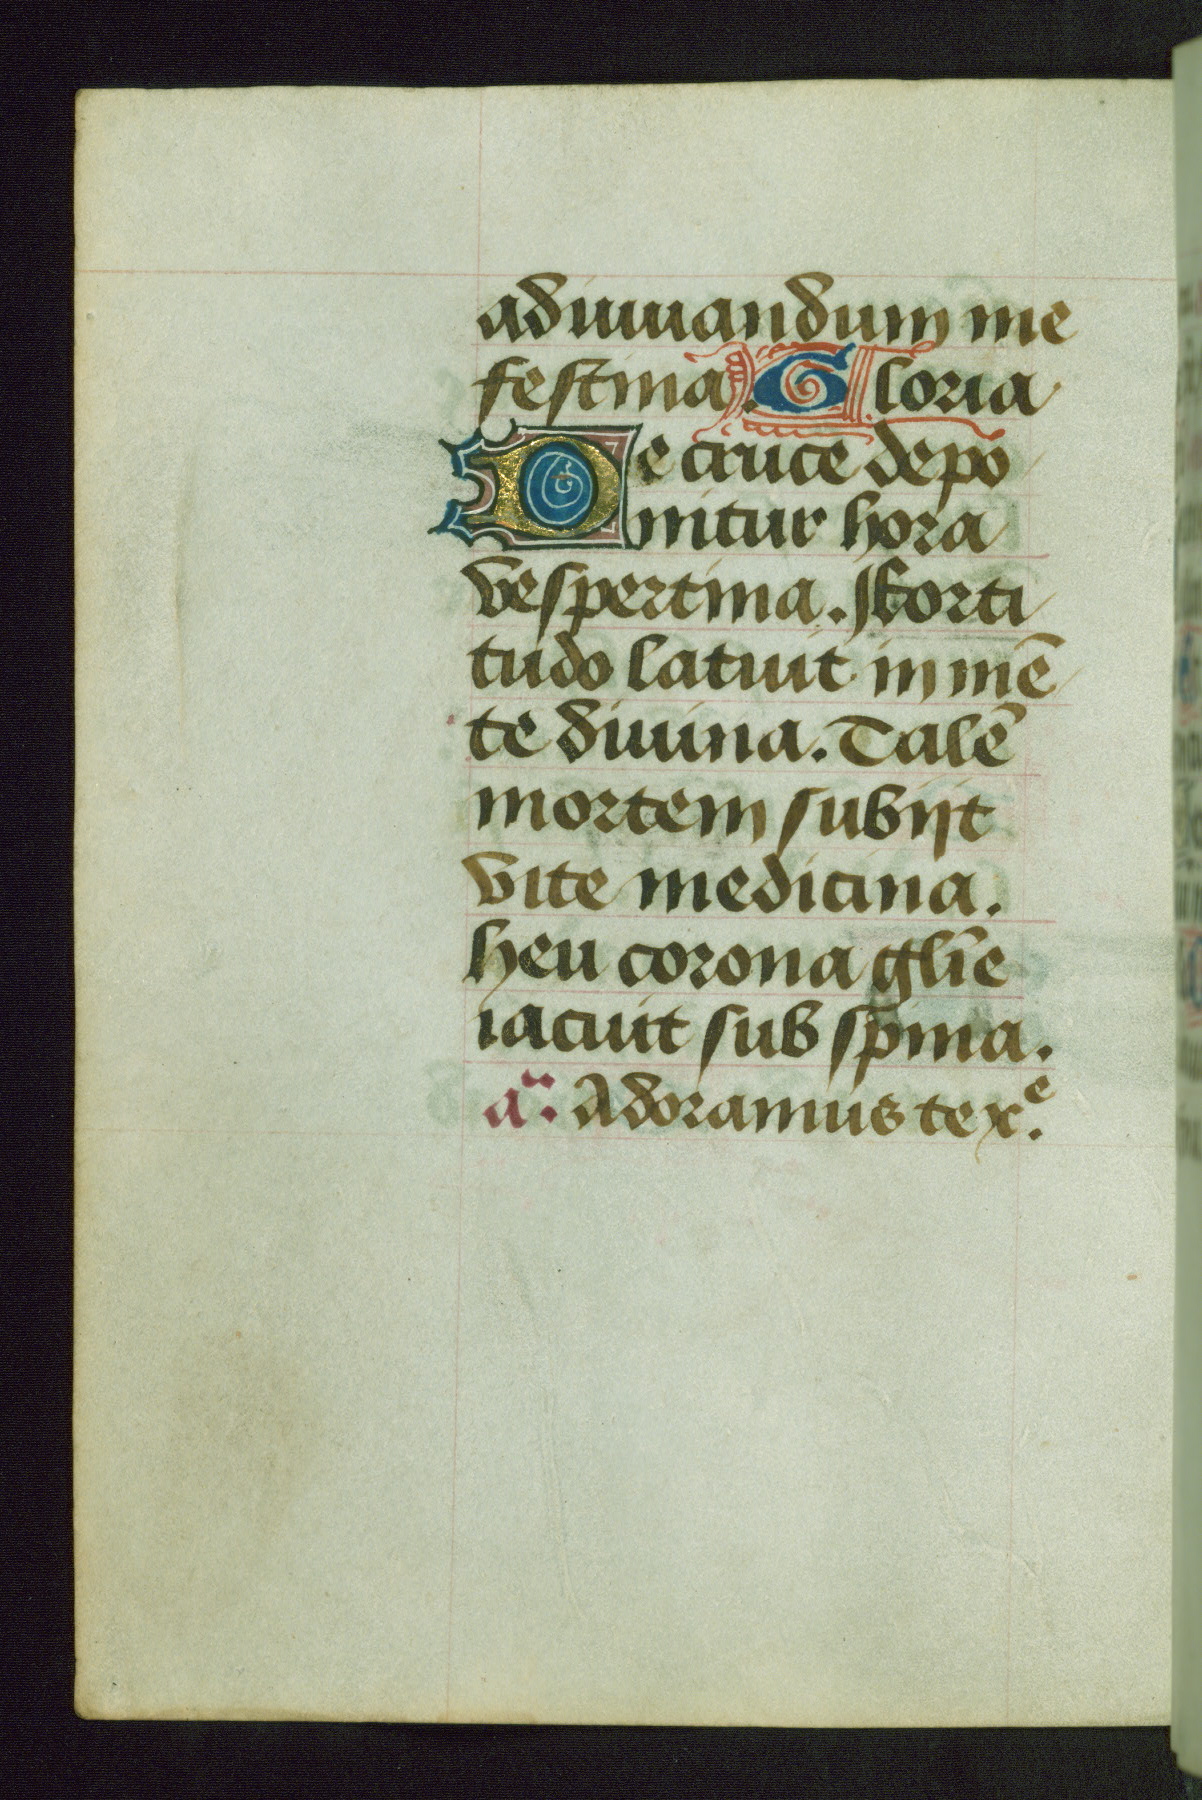 adiuuandum me
festina. Gloria
De cruce depo
nitur hora
vespertina. Forti
tudo latuit in mē
te diuina. Talē
mortem subijt
vite medicina.
heu corona glīe
iacuit sub spina.
añ. Adoramus te xᵉ.